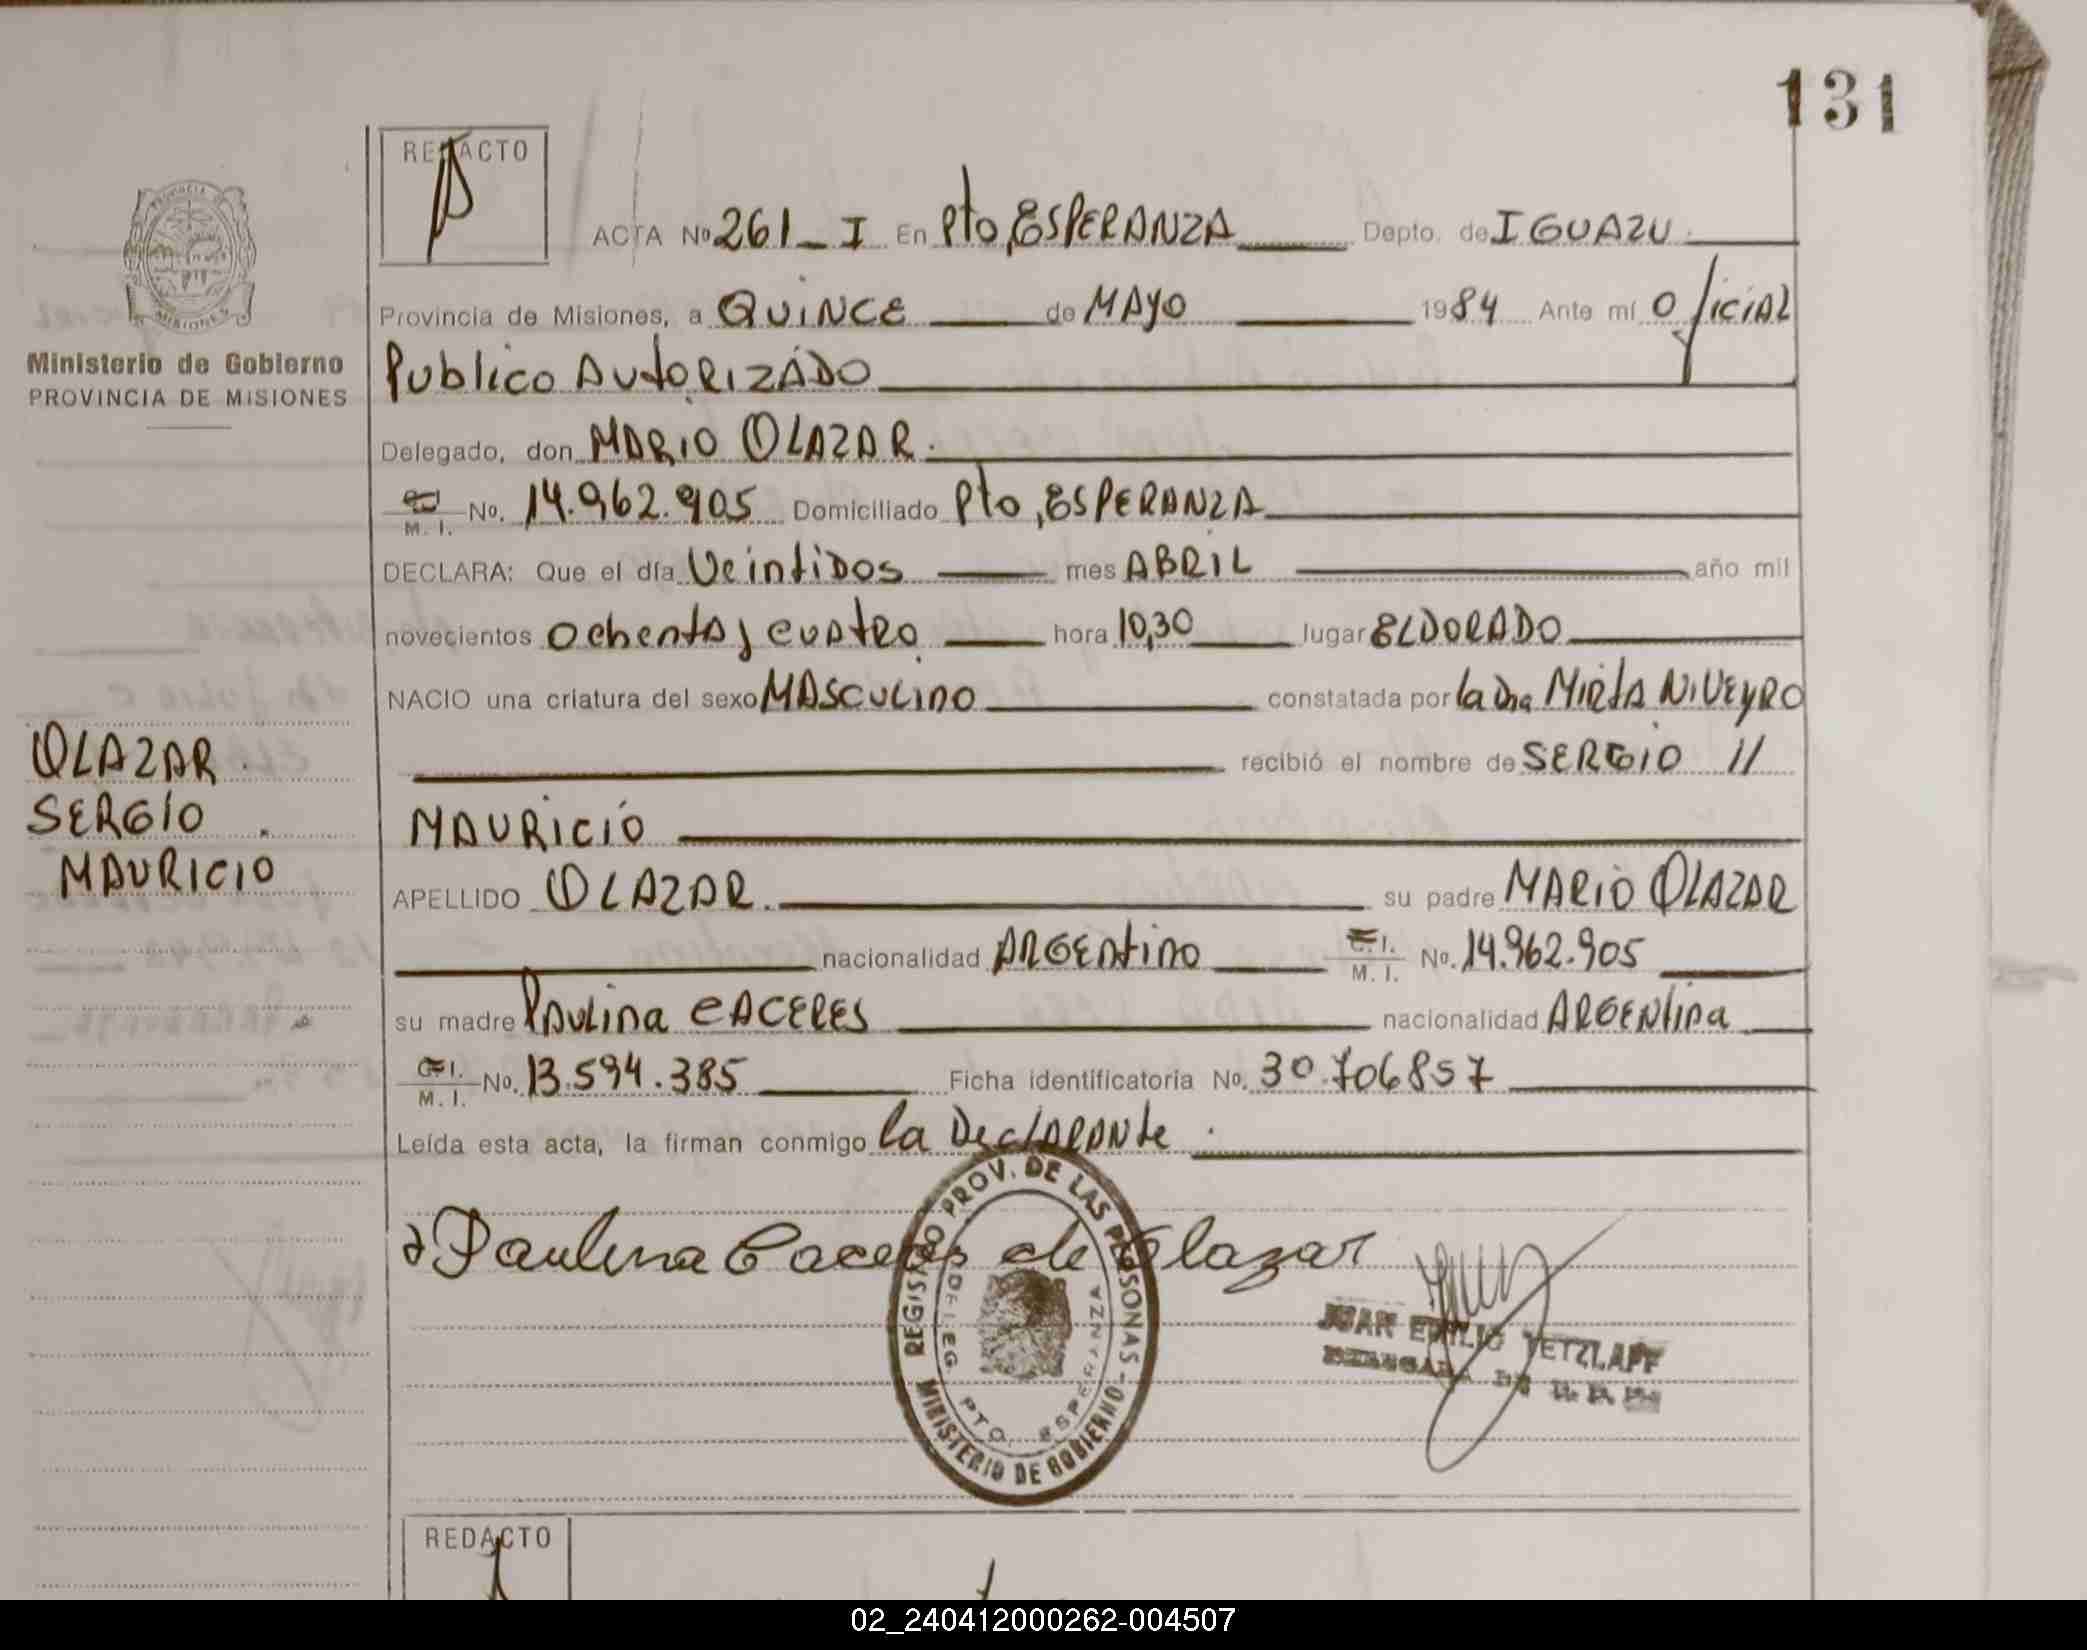 131
REDACTO
ACTA Nº 261_I En Pto, ESPERANZA Depto. de IGUAZU
Provincia de Misiones, a QUINCE de MAYO 1984 Ante mí Oficial
Ministerio de Gobierno
PROVINCIA DE MISIONES
Publico AUTORIZADO
Delegado, don MARIO OLAZAR.
M. I. Nº. 14.962.905 Domiciliado Pto, ESPERANZA
DECLARA: Que el día VeintiDos mes ABRIL año mil
novecientos Ochenta y cuatro hora 10,30 lugar ELDORADO
NACIO una criatura del sexo MASCULINO constatada por la Dra MIRTA NIVEYRO
recibió el nombre de SERGIO //
MAURICIO
OLAZAR.
SERGIO
MAURICIO
APELLIDO OLAZAR. su padre MARIO OLAZAR
nacionalidad ARGENTINO C.I. M. I. Nº. 14.962.905
su madre PAULINA CACERES nacionalidad ARGENTINA
C.I. M. I. Nº. 13.594.385 Ficha identificatoria Nº. 30.706857
Leída esta acta, la firman conmigo la DeclARANte.
Paulina Caceres de Olazar
REGISTRO PROV. DE LAS PERSONAS - MINISTERIO DE GOBIERNO
DELEG PTO. ESPERANZA
JUAN EMILIO TETZLAFF
REDACTO
02_240412000262-004507